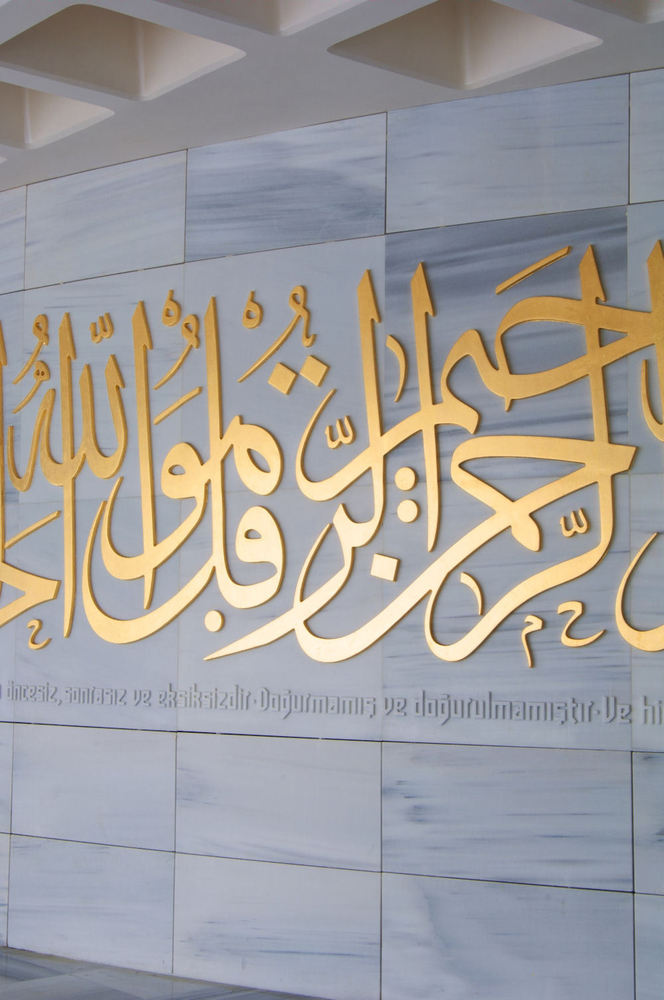 الرحمن الرحيم قل هو الله
öncesiz, sonrasız ve eksiksizdir·Doğurmamış ve doğurulmamıştır·Ve hi